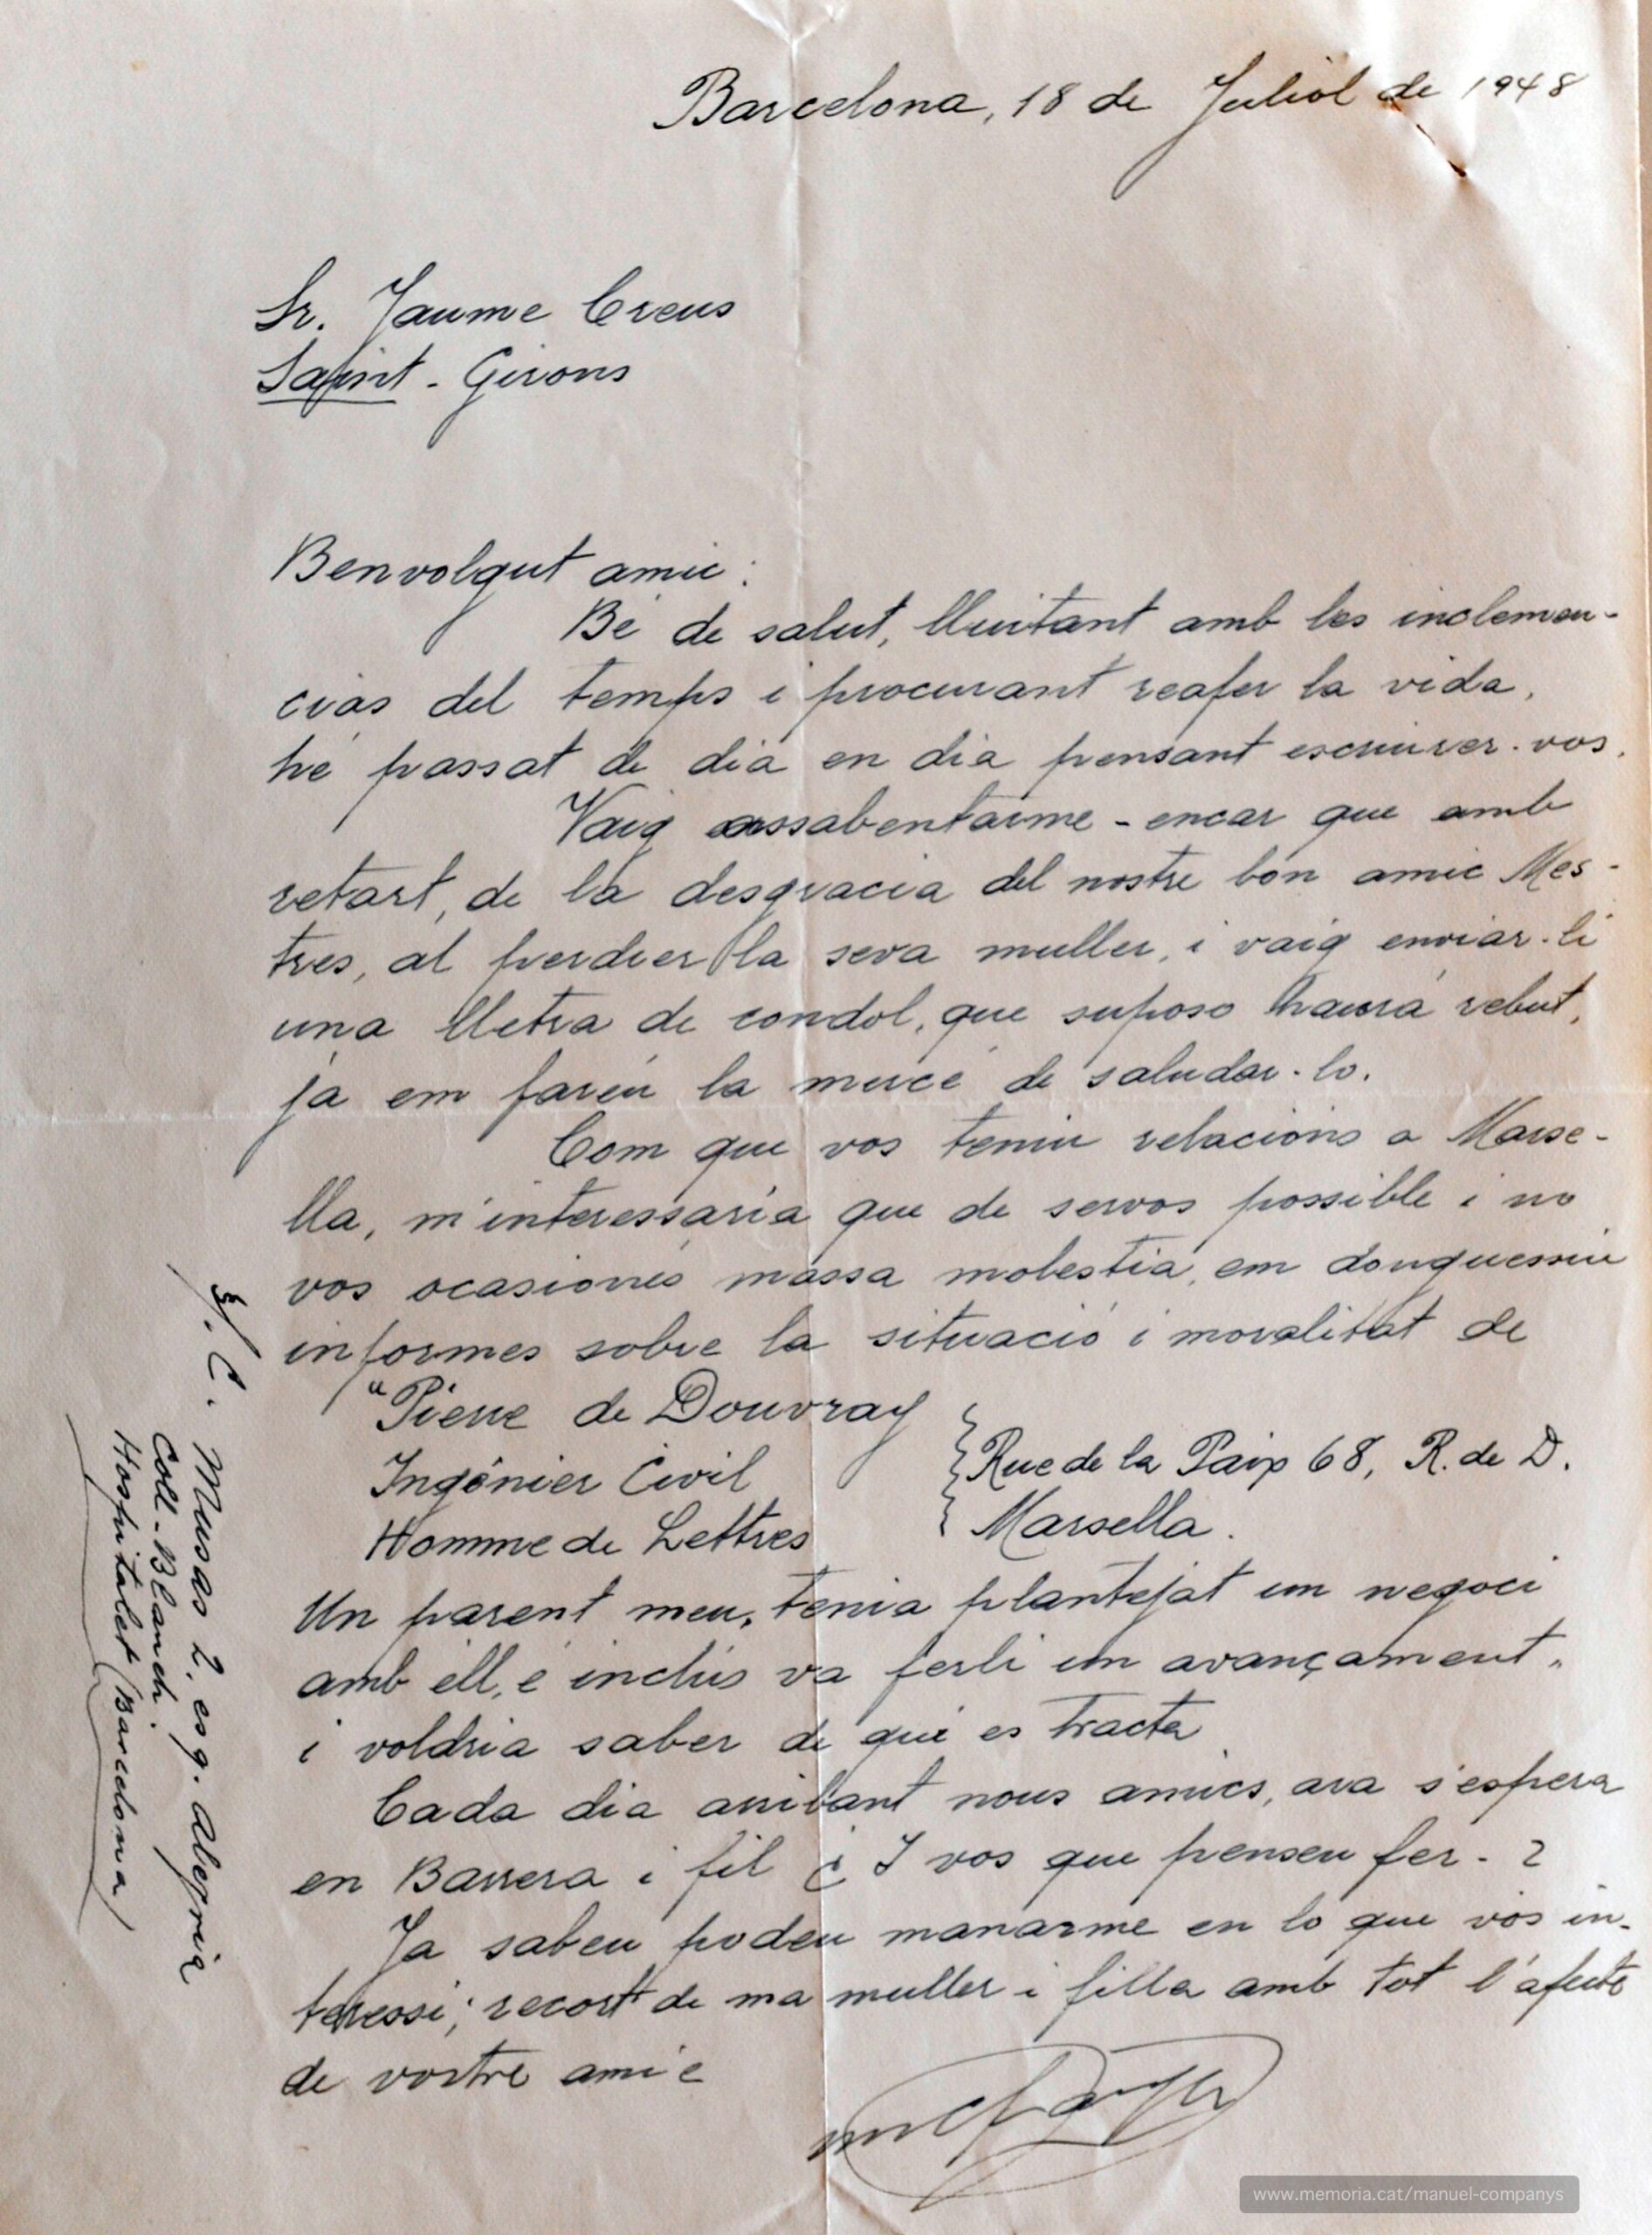 Barcelona, 18 de Juliol de 1948
Sr. Jaume Creus
Saint - Girons
Benvolgut amic:
Bé de salut, lluitant amb les inclemen-
cias del temps i procurant reafer la vida,
he passat de dia en dia pensant escriurer-vos.
Vaig assabentarme - encar que amb
retart, de la desgracia del nostre bon amic Mes-
tres, al perdrer la seva muller, i vaig enviar-li
una lletra de condol, que suposo haurá rebut,
ja em fareu la mercé de saludar-lo.
Com que vos teniu relacions a Marse-
lla, m'interessaria que de servos possible i no
vos ocasionés massa molestia, em donguessiu
informes sobre la situació i moralitat de
"Pierre de Douvray
Ingénier Civil
Homme de Lettres
Rue de la Paix 68, R. de D.
Marsella.
Un parent meu, tenia plantejat un negoci
amb ell, e inclús va ferli un avançament,
i voldria saber de qué es tracta
Cada dia arribant nous amics, ara s'espera
en Barrera i fill ¿ I vos que penseu fer-?
Ja sabeu podeu manarme en lo que vos in-
teressi; recort de ma muller i filla amb tot l'afecte
de vostre amic
S. C. Musas 2, esq. Alegria
Coll-Blanch.
Hospitalet (Barcelona)
www.memoria.cat/manuel-companys